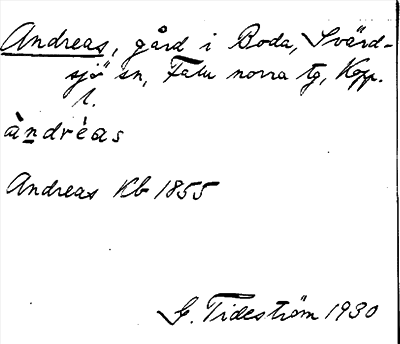 Andreas, gård i Boda, Svärd-
sjö sn, Falu norra tg, Kopp.
l.
àndrèas
Andreas Kb 1855
G. Tideström 1930